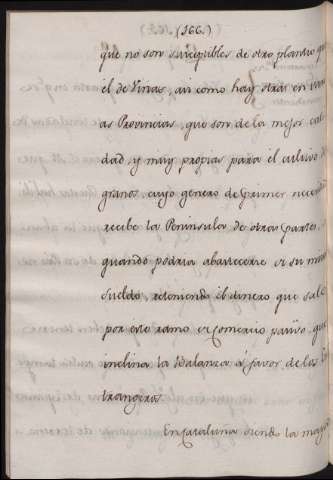 (166.)
que no son suscepibles de otro plantio que
él de Vinas, asi como hay otras en
as Provincias, que son de la mejor cali
dad, y muy propias para él cultivo de
granos, cuyo genero de primer
recibe la Peninsula de otras partes,
quando podria abastecerse en su mis
suelo, reteniendo él dinero que sale
por este ramo en comercio pasivo, que
inclina la Balanza á favor de las Es
trangeras.
En Cataluna siendo la mayor